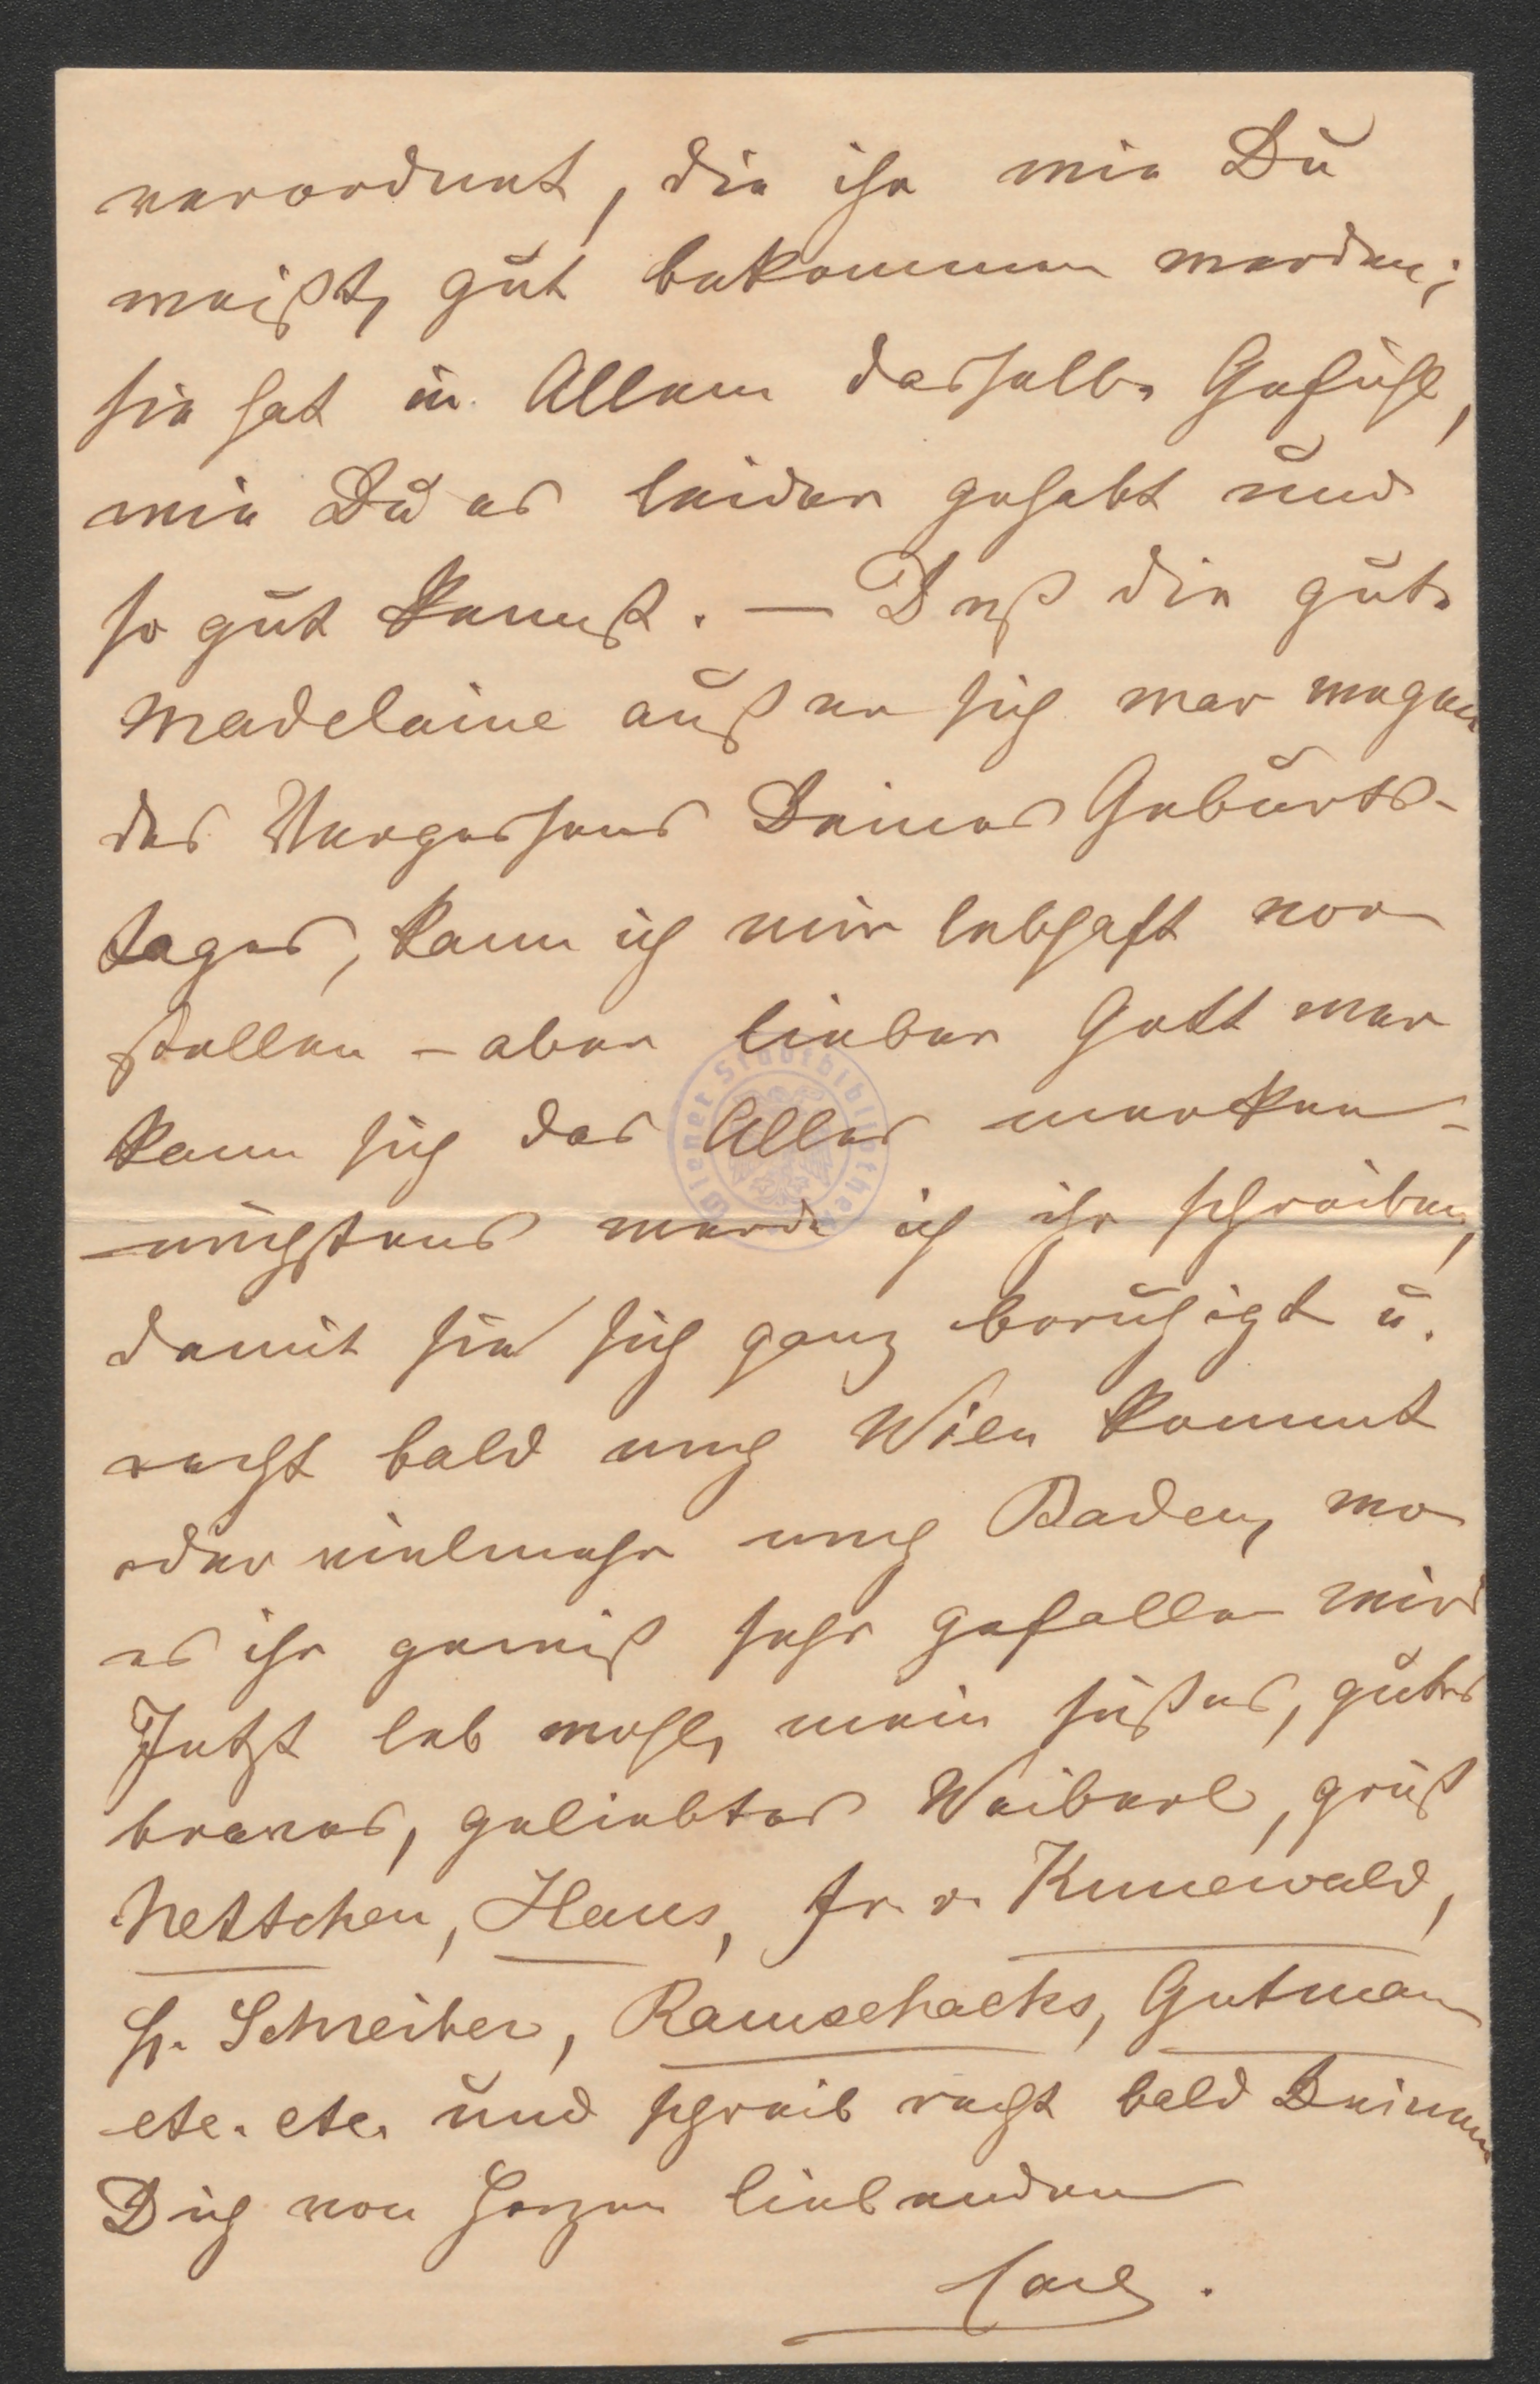 verordnet, die ihr wie Du
weißt, gut bekommen werden;
sie hat in Allem dasselbe Gefühl,
wie Du es leider gehabt und
so gut kennst. — Daß die gute
Madelaine außer sich war wegen
des Vergessens Deines Geburts-
tages, kann ich mir lebhaft vor
stellen – aber lieber Gott wer
kann sich das Alles merken –
nächstens werde ich ihr schreiben,
damit sie sich ganz beruhigt u.
recht bald nach Wien kommt
oder vielmehr nach Baden, wo
es ihr gewiß sehr gefallen wird
Jetzt leb wohl, mein süßes, gutes
braves, geliebtes Weiberl, grüß
Nettchen, Hans, Fr. v. Kunewald,
H. Schreiber, Ramschacks, Gutmann
etc. etc. und schreib recht bald Deinem
Dich von Herzen liebenden
Carl.
Wiener Stadtbibliothek